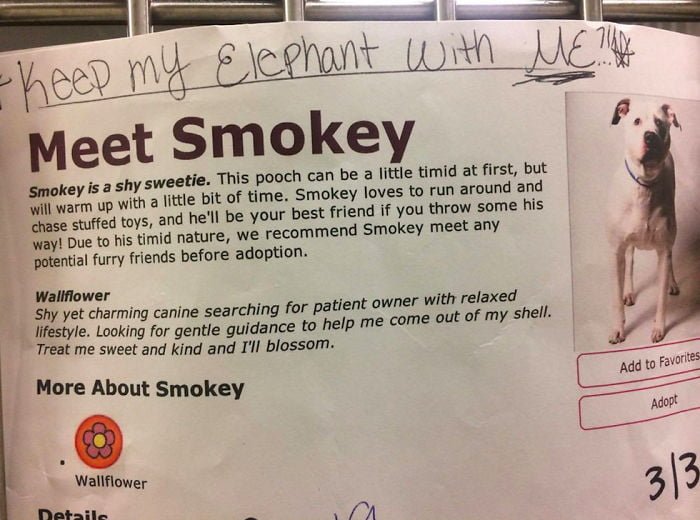 Keep my Elephant with ME!!
Meet Smokey
Smokey is a shy sweetie. This pooch can be a little timid at first, but
will warm up with a little bit of time. Smokey loves to run around and
chase stuffed toys, and he'll be your best friend if you throw some his
way! Due to his timid nature, we recommend Smokey meet any
potential furry friends before adoption.
Wallflower
Shy yet charming canine searching for patient owner with relaxed
lifestyle. Looking for gentle guidance to help me come out of my shell.
Treat me sweet and kind and I'll blossom.
More About Smokey
Wallflower
Details
Add to Favorites
Adopt
3/3